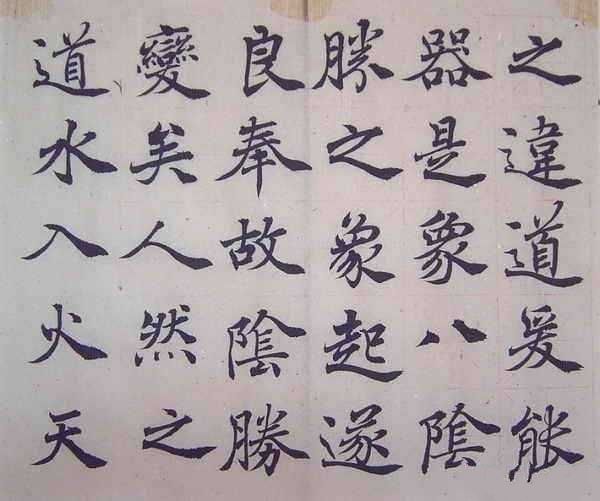 之違道爰能
器是象八陰
勝之象起遂
良奉故陰勝
變矣人然之
道水入火天